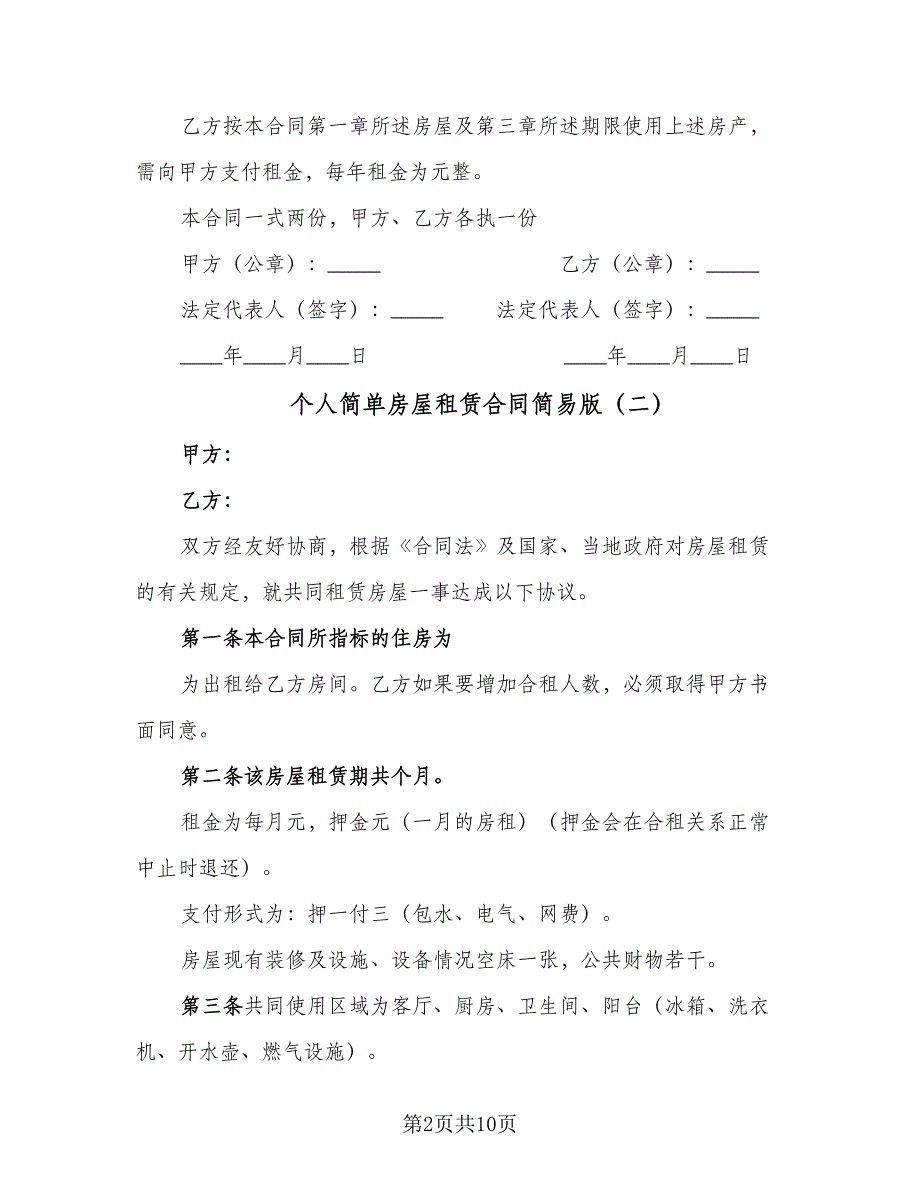 乙方按本合同第一章所述房屋及第三章所述期限使用上述房产，
需向甲方支付租金，每年租金为元整。
本合同一式两份，甲方、乙方各执一份
甲方（公章）：_____ 乙方（公章）：_____
法定代表人（签字）：_____ 法定代表人（签字）：_____
____年____月____日 ____年____月____日
个人简单房屋租赁合同简易版（二）
甲方：
乙方：
双方经友好协商，根据《合同法》及国家、当地政府对房屋租赁
的有关规定，就共同租赁房屋一事达成以下协议。
第一条本合同所指标的住房为
为出租给乙方房间。乙方如果要增加合租人数，必须取得甲方书
面同意。
第二条该房屋租赁期共个月。
租金为每月元，押金元（一月的房租）（押金会在合租关系正常
中止时退还）。
支付形式为：押一付三（包水、电气、网费）。
房屋现有装修及设施、设备情况空床一张，公共财物若干。
第三条共同使用区域为客厅、厨房、卫生间、阳台（冰箱、洗衣
机、开水壶、燃气设施）。
第2页共10页